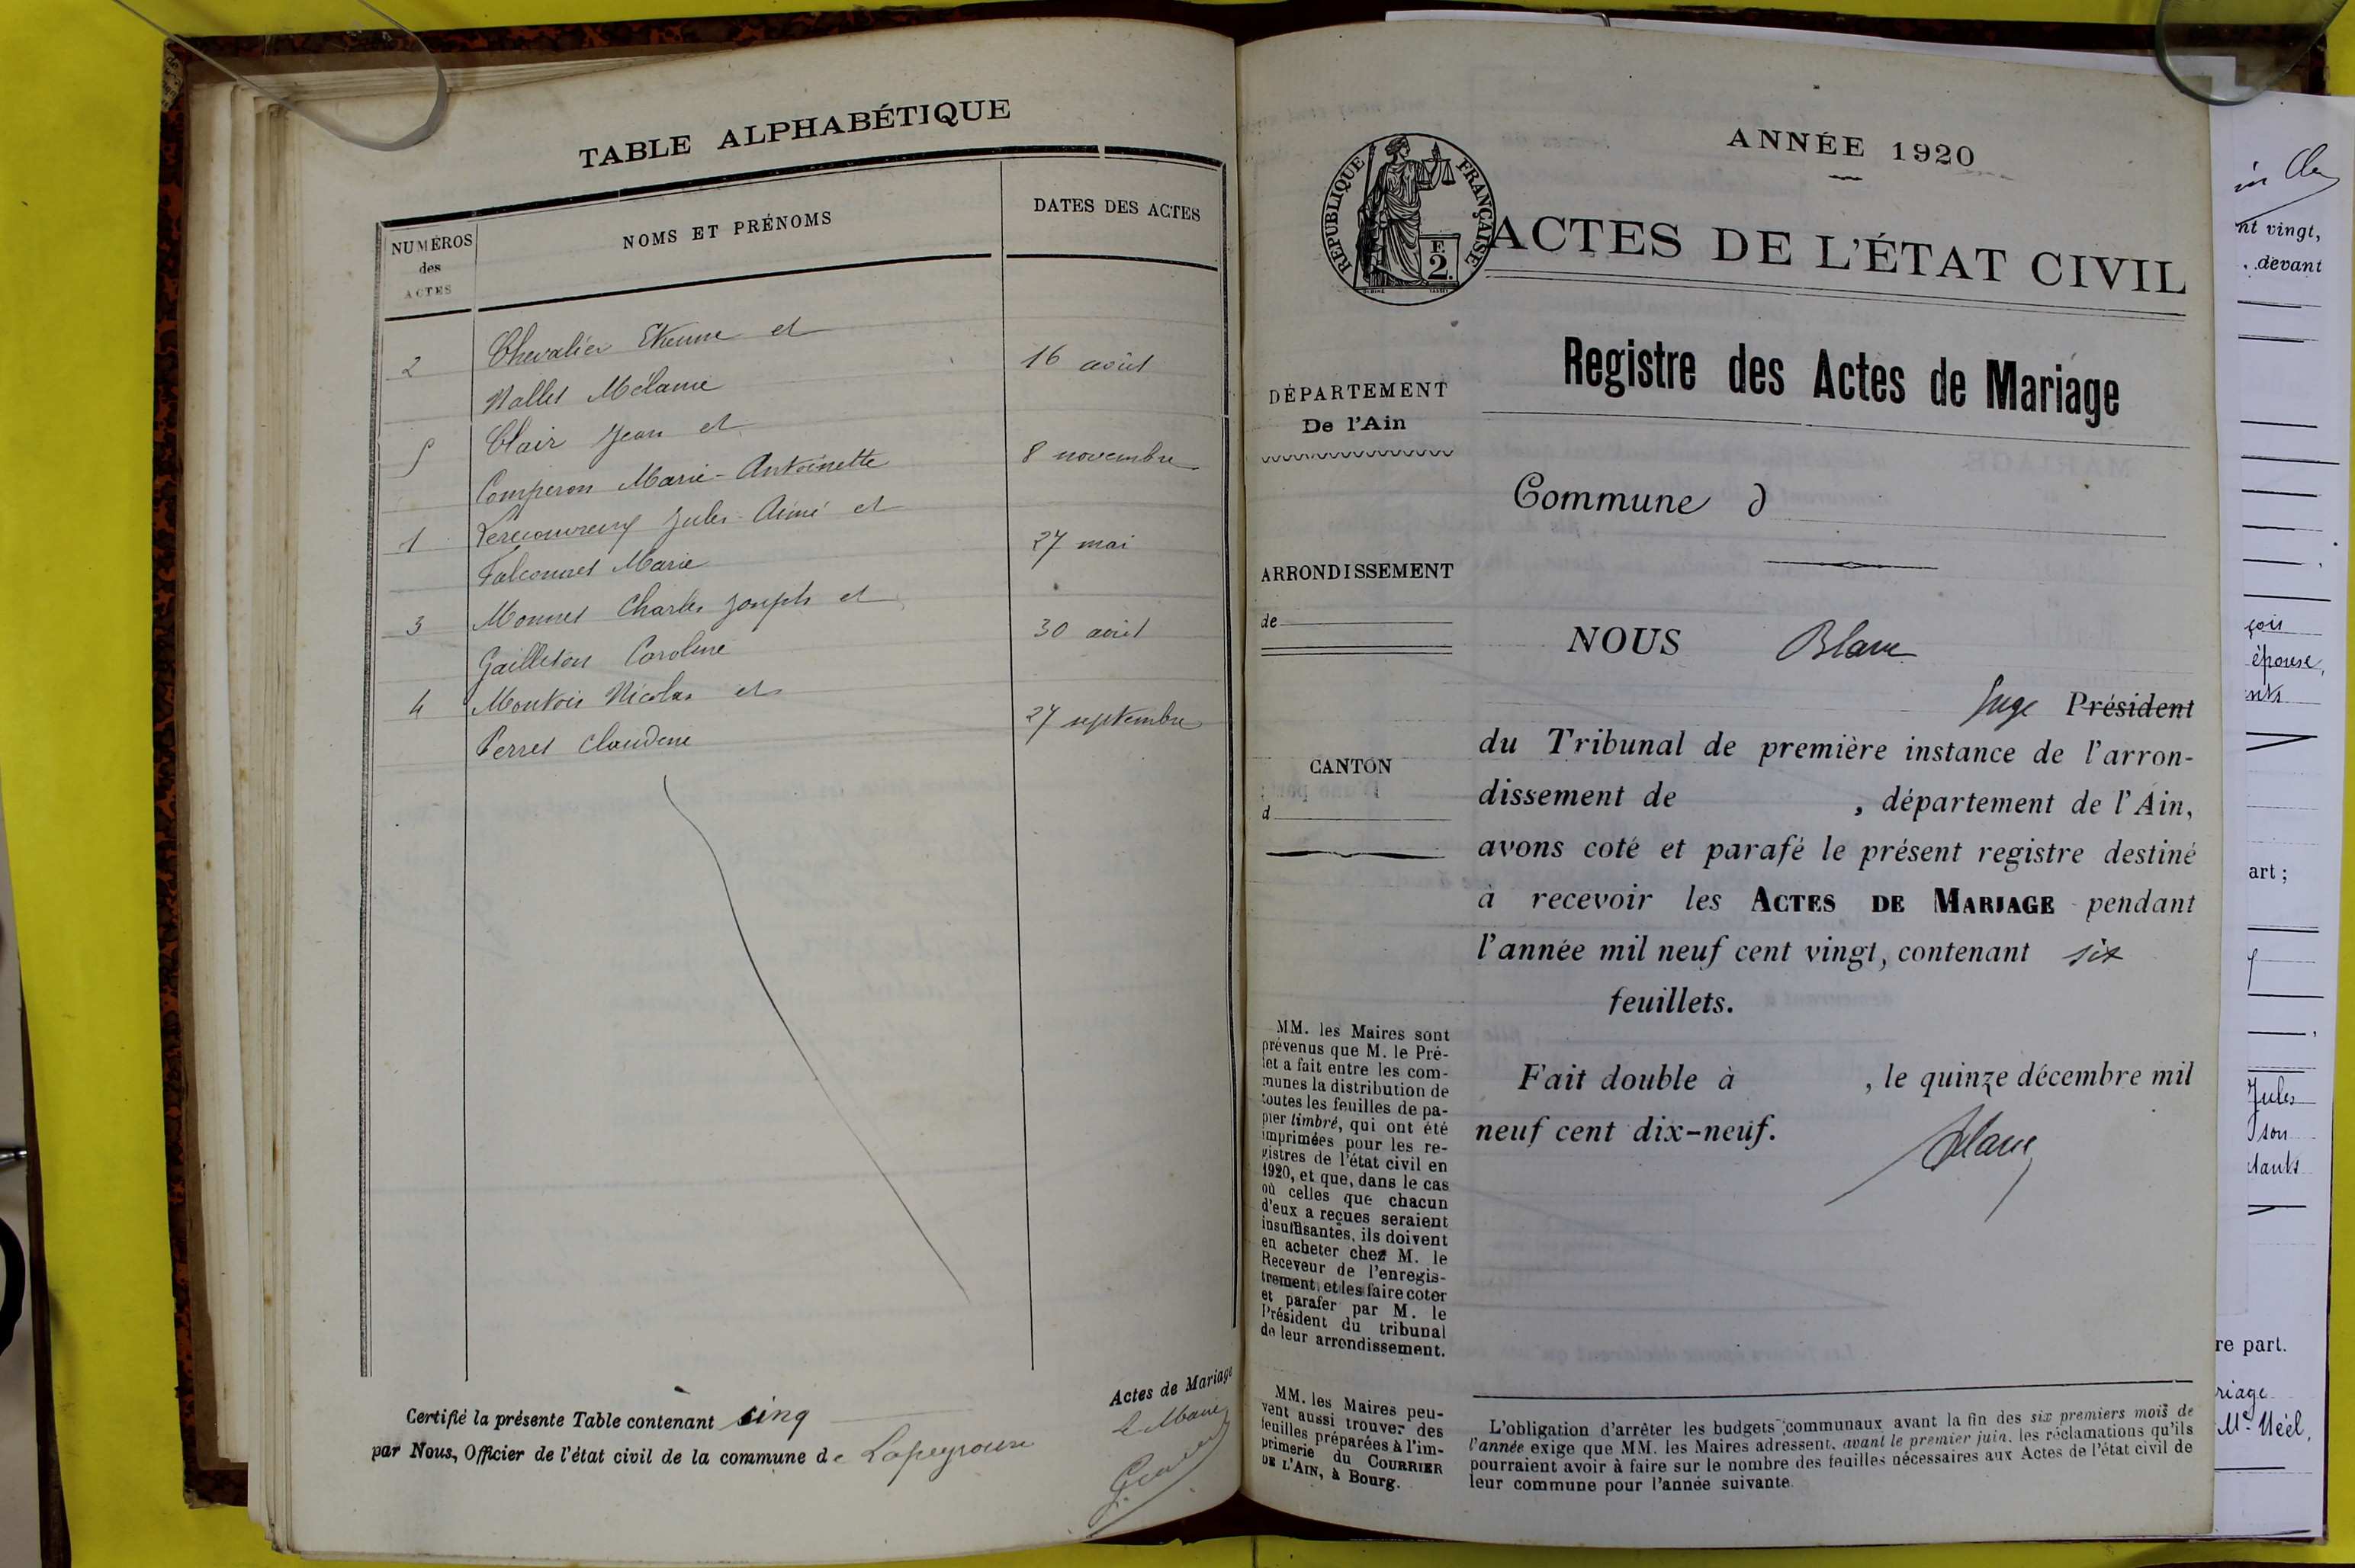 TABLE ALPHABÉTIQUE
NUMÉROS
des
ACTES
NOMS ET PRÉNOMS
DATES DES ACTES
2
Chevalier Etienne et
Nallet Mélanie
16 août
5
Clair Jean et
Comperon Marie-Antoinette
8 novembre
1
Jules-Aimé et
Falconnet Marie
27 mai
3
Monnet Charles Joseph et
Gailleton Caroline
30 août
4
Montois Nicolas et
Perret Claudine
27 septembre
Certifié la présente Table contenant cinq
Actes de Mariage
par Nous, Officier de l'état civil de la commune de Lapeyrouse
Le Maire
ANNÉE 1920
RÉPUBLIQUE FRANÇAISE
F.
2.
ACTES DE L'ÉTAT CIVIL
Registre des Actes de Mariage
DÉPARTEMENT
De l'Ain
Commune d
ARRONDISSEMENT
de
NOUS Blanc
Juge Président
CANTON
d
du Tribunal de première instance de l'arron-
dissement de , département de l'Ain,
avons coté et parafé le présent registre destiné
à recevoir les ACTES DE MARIAGE pendant
l'année mil neuf cent vingt, contenant six
feuillets.
Fait double à , le quinze décembre mil
neuf cent dix-neuf.
Blanc
MM. les Maires sont
prévenus que M. le Pré-
fet a fait entre les com-
munes la distribution de
toutes les feuilles de pa-
pier timbré, qui ont été
imprimées pour les re-
gistres de l'état civil en
1920, et que, dans le cas
où celles que chacun
d'eux a reçues seraient
insuffisantes, ils doivent
en acheter chez M. le
Receveur de l'enregis-
trement, et les faire coter
et parafer par M. le
Président du tribunal
de leur arrondissement.
MM. les Maires peu-
vent aussi trouver des
feuilles préparées à l'im-
primerie du COURRIER
DE L'AIN, à Bourg.
L'obligation d'arrêter les budgets communaux avant la fin des six premiers mois de
l'année exige que MM. les Maires adressent, avant le premier juin, les réclamations qu'ils
pourraient avoir à faire sur le nombre des feuilles nécessaires aux Actes de l'état civil de
leur commune pour l'année suivante.
nt vingt,
, devant
épouse,
art ;
Jules
son
re part.
riage